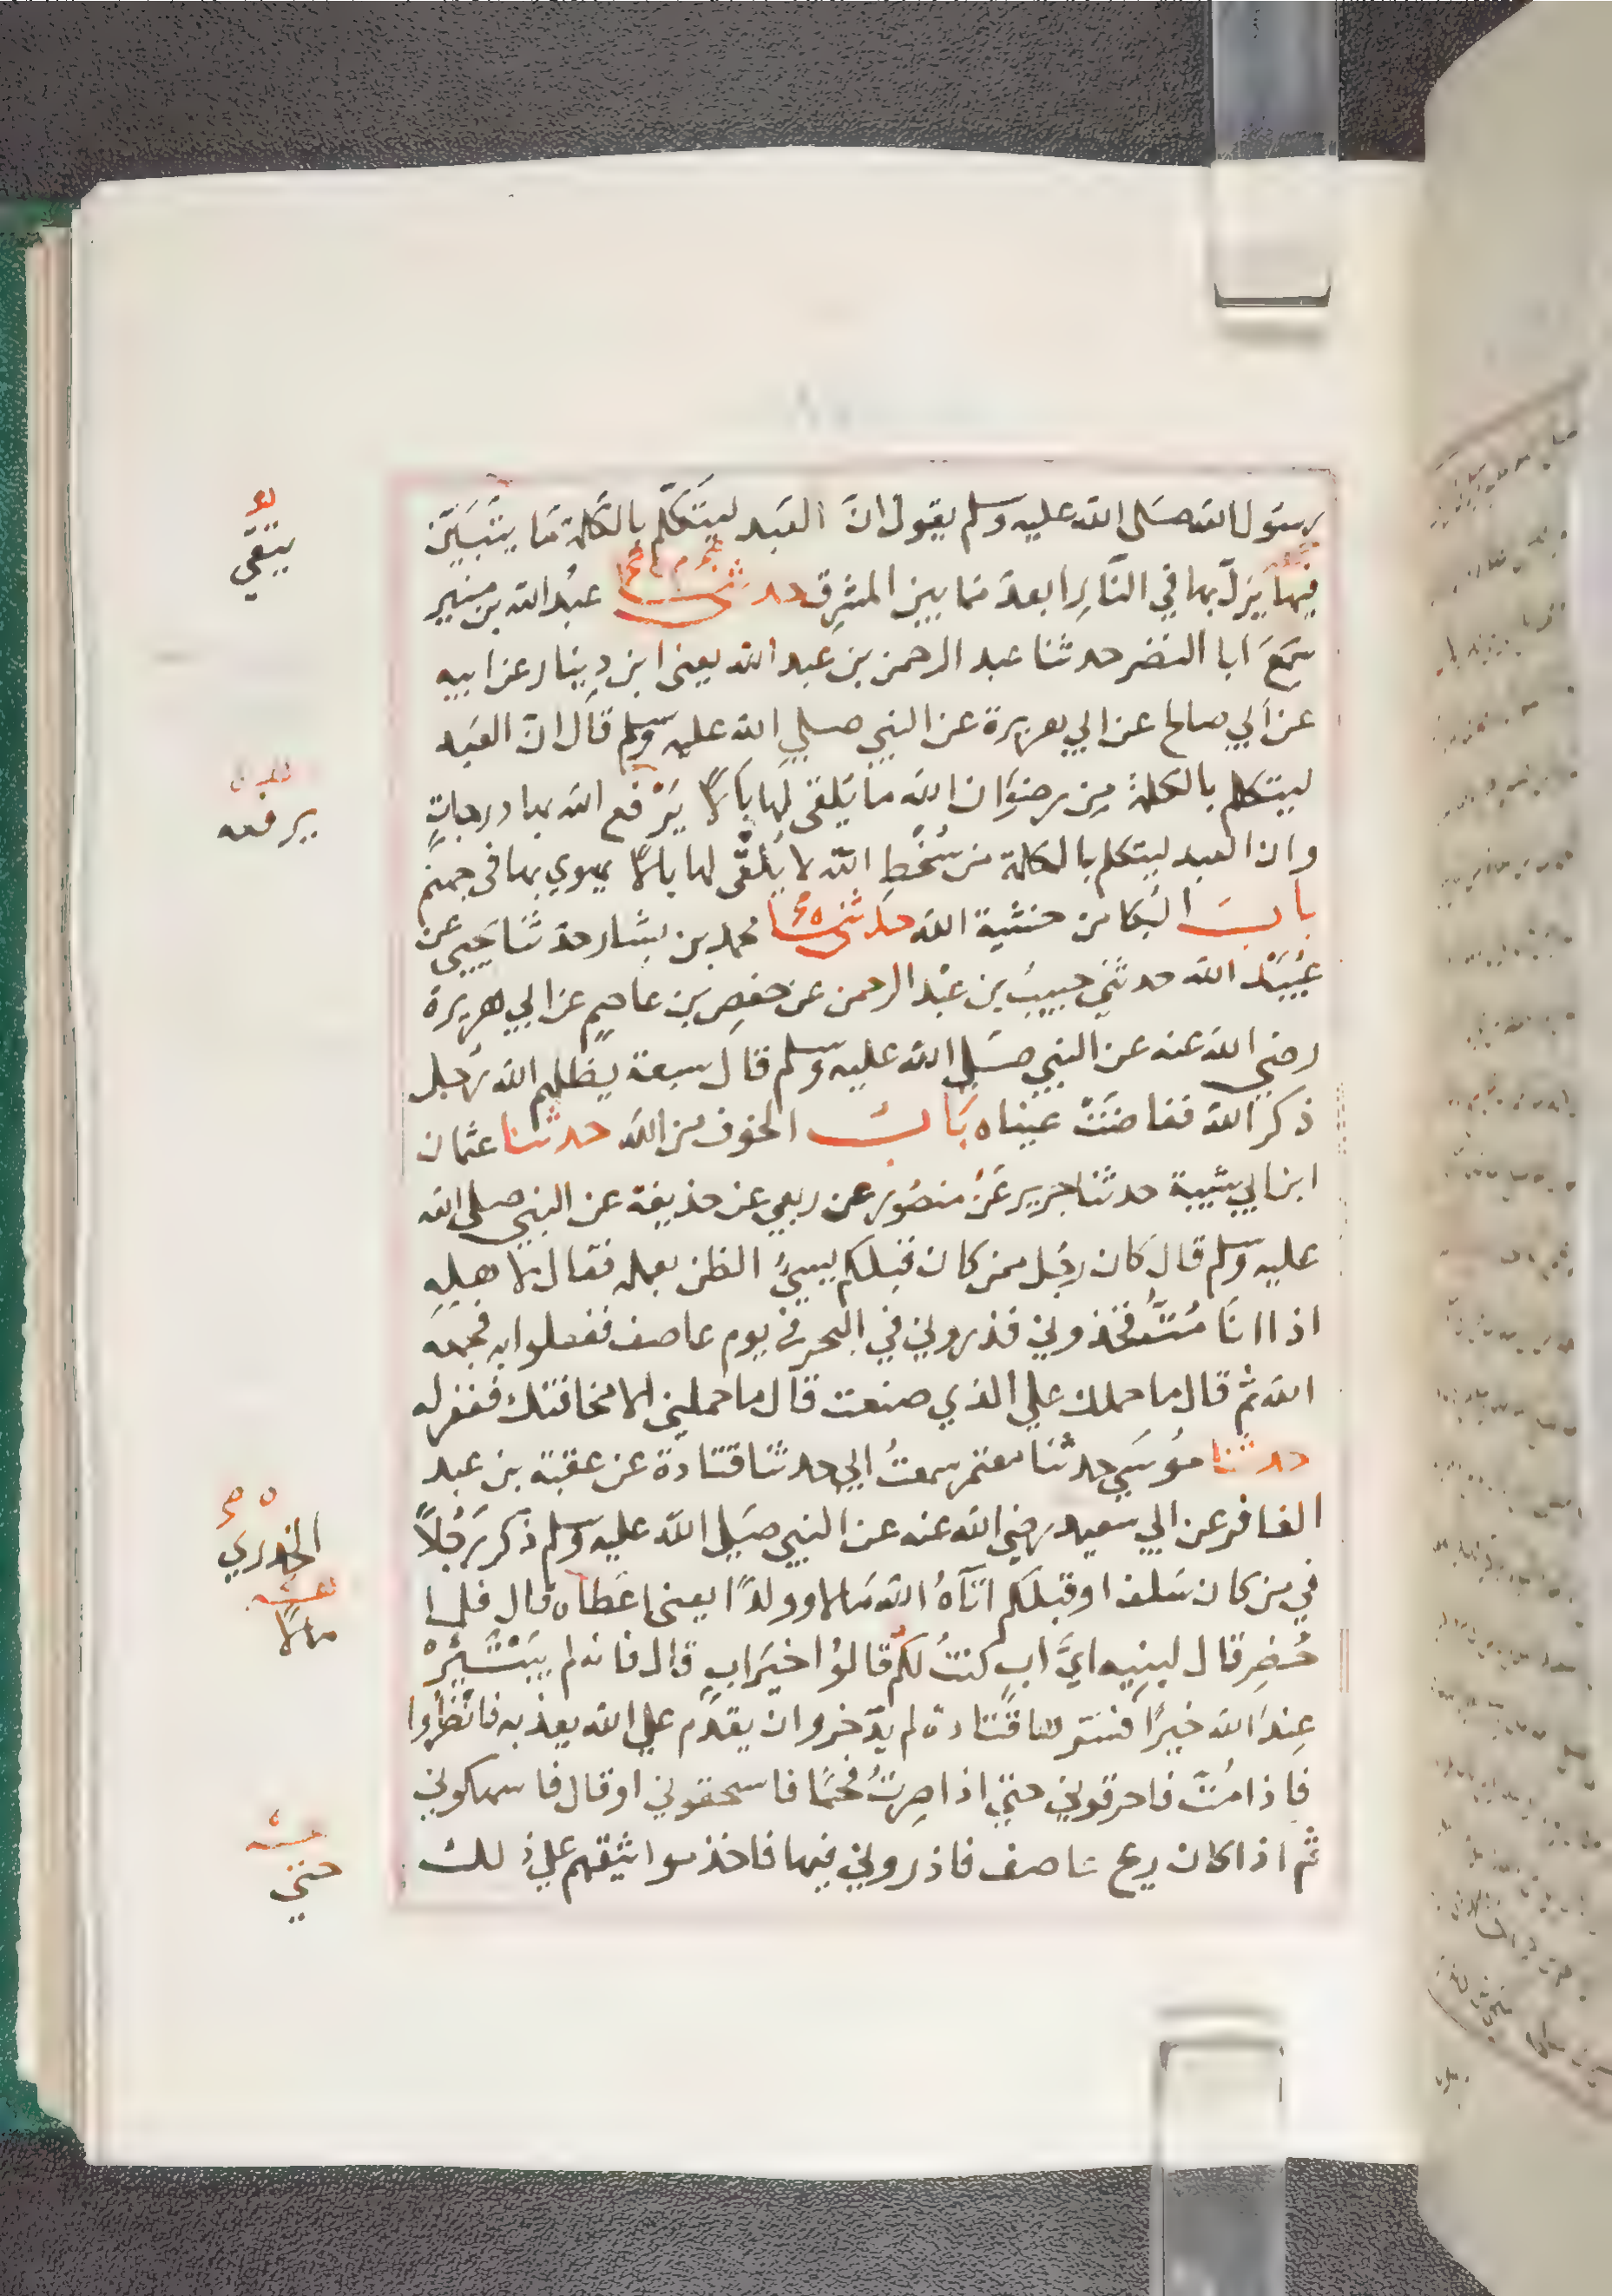 رسول الله صلى الله عليه وسلم يقول انّ العَبد ليتكلّم بالكلمة مَا يتَبَيّن
فيها يَزِلّ بها في النَّارِ ابعدَ مما بين المشرِق حدثنى عبدُ الله بن منير
سَمِعَ ابا النضر حدثنا عبد الرحمن بن عبد الله يعنى ابن دِينار عن ابيه
عن ابي صالح عن ابي هريرة عن النبي صلي الله عليه وسلم قال انّ العَبد
ليتكلم بالكلمة مِن رِضوَان الله ما يُلقى لها بَالًا يَرْفع الله بها درجاتٍ
وان العبد ليتكلم بالكلمة من سُخْطِ الله لا يُلقّى لها بالًا يهوي بها فى جهنم
بابُ البُكا من خشية الله حدثنا محمد بن بشار حدثنا يَحيى عن
عُبَيْد الله حدثني خبيبُ بن عبْد الرحمن عن حفصِ بن عاصِمٍ عن ابي هريرة
رضي الله عنه عن النبي صَلي الله عليه وسلم قال سبعة يظلهم الله رَجل
ذكر الله ففاضَتْ عيناه بَابُ الخوف من الله حدثنا عثمان
ابن ابي شيبة حدثنا جرير عَنْ منصُور عن ربعي عن حذيفة عن النبي صلى الله
عليه وسلم قال كان رجُل ممن كان قبلكم يسيُ الظن بعمله فقال لاهلِهِ
اذا انَا مُتُّ فخذوني فذروني في البحر في يوم عاصف ففعلوا به فجمعه
الله ثم قال ما حملك علي الذي صنعت قال ما حملني الا مخافتك فغفر له
حدثنا موُسَي حدثنا معتمر سمعتُ ابي حدثنا قتادة عن عقبة بن عبد
الغافر عن ابي سعيد رضي الله عنه عن النبي صَلي الله عليه وسلم ذكر رَجُلًا
في من كان سَلف او قبلكم اتاهُ الله مَالا وولدًا يعني اعَطاه قال فلما
حُضِر قال لبنِيه ايَّ ابٍ كنتُ لكم قالوُا خيَر ابٍ قال فانه لم يَبْتَئِرْ
عِندَ الله خيرًا فسّرها قتادة لم يدّخر وان يقدَم علي الله يعذبه فانْظرُوا
فاذا مُتُّ فاحرقوني حتي اذا صِرتُ فحمًا فاسحقوني او قال فاسهكوني
ثم اذا كان ريح عاصف فاذروني فيها فاخذ مواثيقهم علي ذلك
يتقي
يرفعه
الخدري
مالًا
حتي